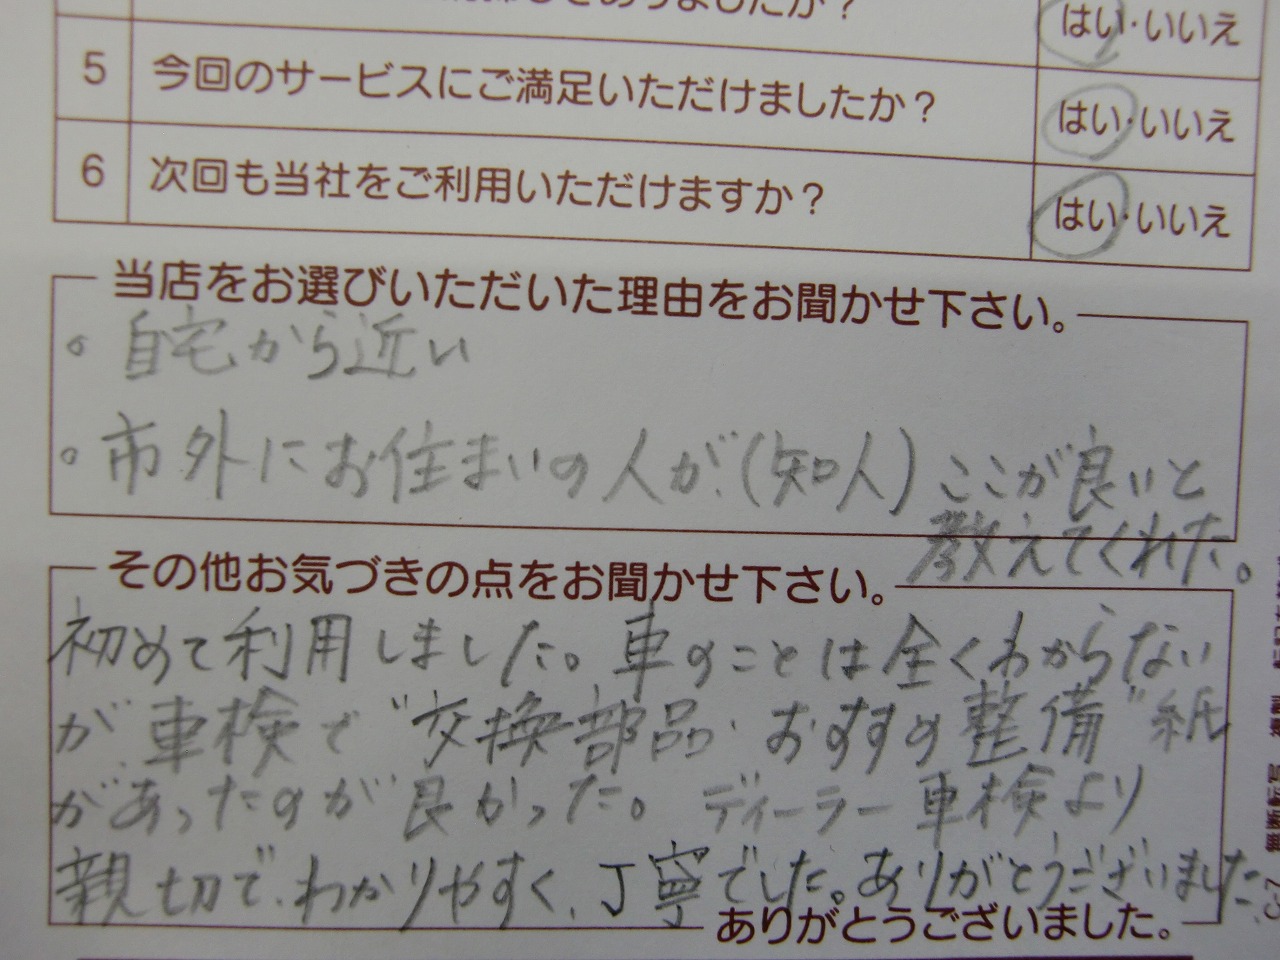 ありましたか？ はい・いいえ
5 今回のサービスにご満足いただけましたか？ はい・いいえ
6 次回も当社をご利用いただけますか？ はい・いいえ
当店をお選びいただいた理由をお聞かせ下さい。
。自宅から近い
。市外にお住まいの人が、(知人) ここが良いと
教えてくれた。
その他お気づきの点をお聞かせ下さい。
初めて利用しました。車のことは全くわからない
が、車検で"交換部品・おすすめ整備"紙
があったのが良かった。ディーラー車検より
親切で、わかりやすく、丁寧でした。ありがとうございました。
ありがとうございました。
C-7